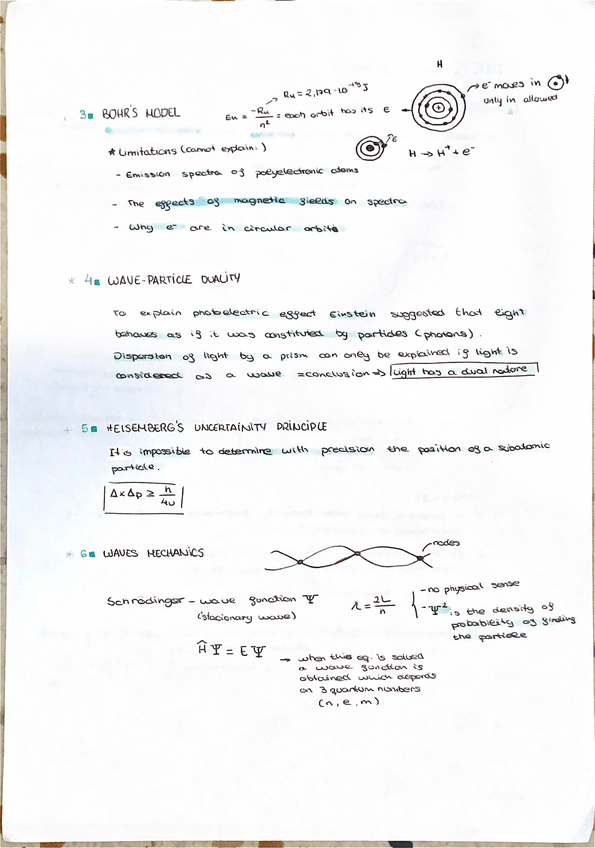 H
Ru = 2,179 · 10⁻¹⁸ J
3. BOHR'S MODEL
En = -Ru/n² = each orbit has its E
e⁻ moves in
only in allowed
E
* Limitations (cannot explain:)
H → H⁺ + e⁻
- Emission spectra of polyelectronic atoms
- The effects of magnetic fields on spectra
- Why e⁻ are in circular orbits
* 4. WAVE-PARTICLE DUALITY
To explain photoelectric effect Einstein suggested that light
behaves as if it was constituted by particles (photons).
Dispersion of light by a prism can only be explained if light is
considered as a wave = conclusion ⇒ light has a dual nature
5. HEISEMBERG'S UNCERTAINITY PRINCIPLE
It is impossible to determine with precision the position of a subatomic
particle.
Δx Δp ≥ h/4u
* 6. WAVES MECHANICS
nodes
Schrödinger - wave function Ψ
(stacionary wave)
λ = 2L/n
- no physical sense
- Ψ² is the density of
probability of finding
the particle
ĤΨ = EΨ
→ when this eq. is solved
a wave function is
obtained which depends
on 3 quantum numbers
(n, l, m)